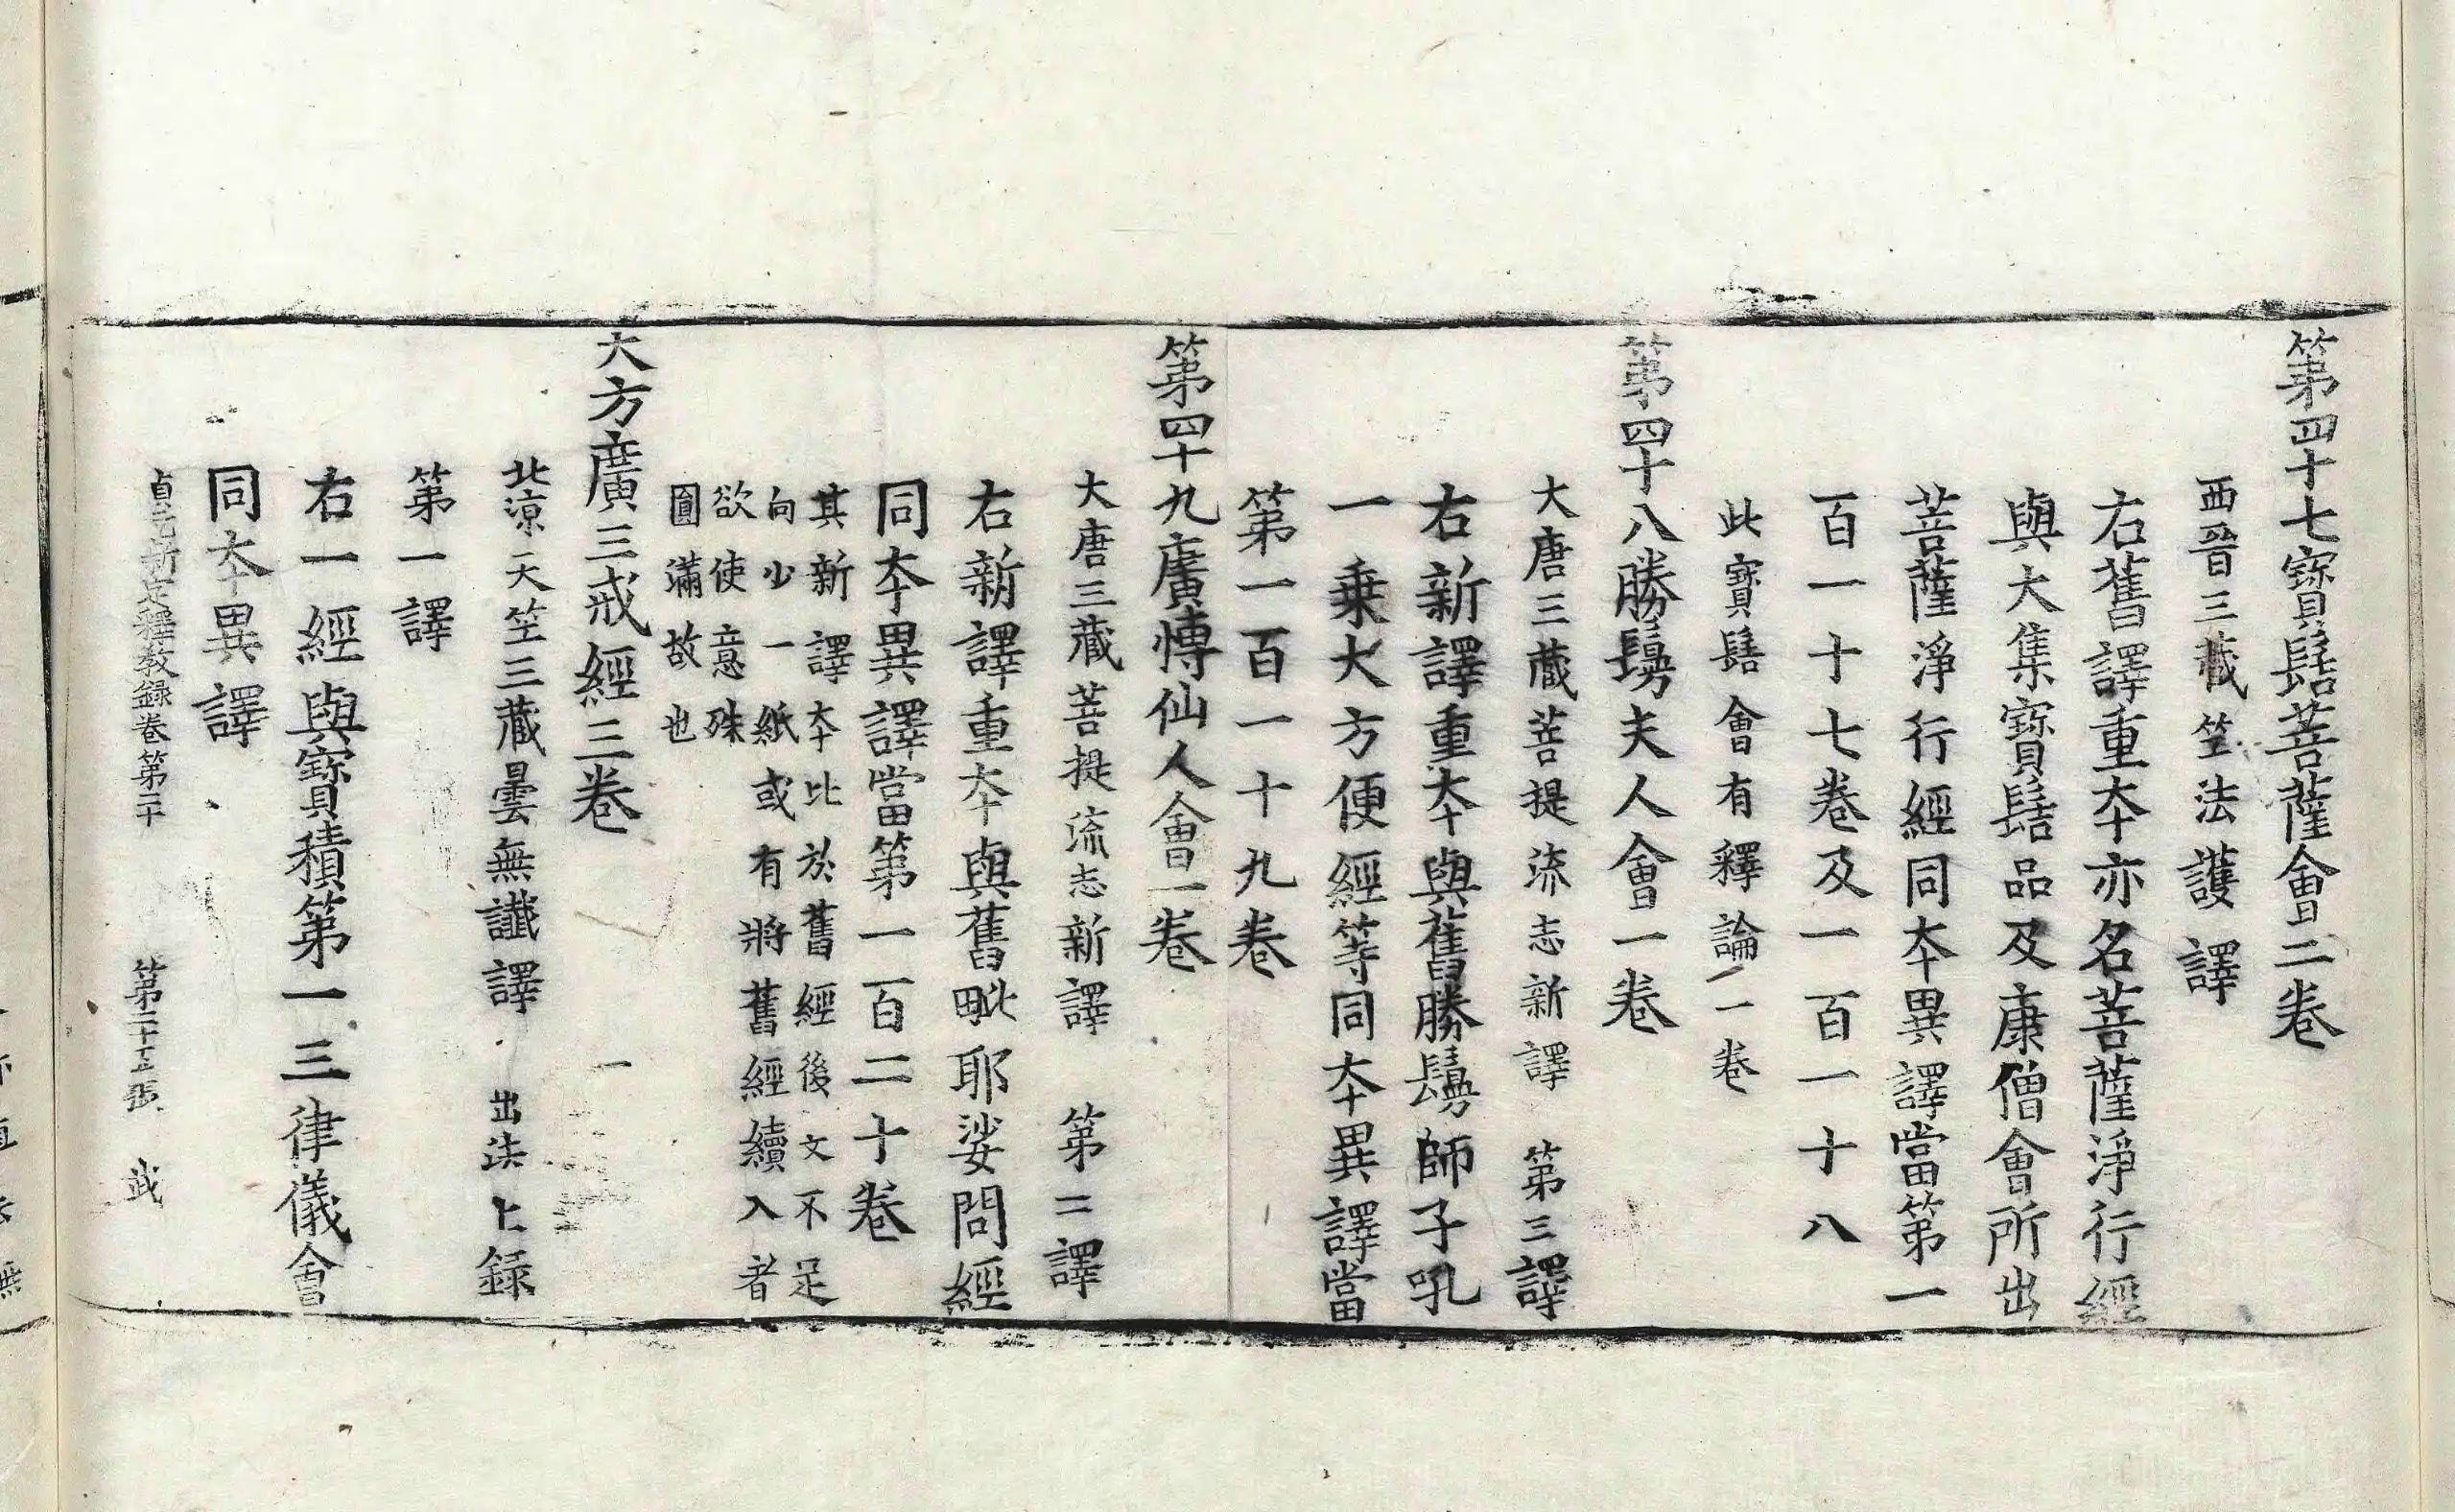 第四十七寳髻菩薩會二卷
西晉三藏竺法護譯
右舊譯重夲亦名菩薩淨行經
與大集寳髻品及康僧會所出
菩薩淨行經同夲異譯當第一
百一十七卷及一百一十八
此寳髻會有釋論一卷
第四十八勝鬘夫人會一卷
大唐三藏菩提流志新譯 第三譯
右新譯重夲與舊勝鬘師子吼
一乗大方便經等同夲異譯當
第一百一十九卷
第四十九廣愽仙人會一卷
大唐三藏菩提流志新譯 第二譯
右新譯重夲與舊毗耶娑問經
同夲異譯當第一百二十卷
其新譯夲比於舊經後文不足
向少一紙或有將舊經續入者
欲使意殊
圓滿故也
大方廣三戒經三卷
北涼天竺三藏曇無讖譯 出法上録
第一譯
右一經與寳積第一三律儀會
同夲異譯
貞元新定釋教録卷第二十 第二十五張 武